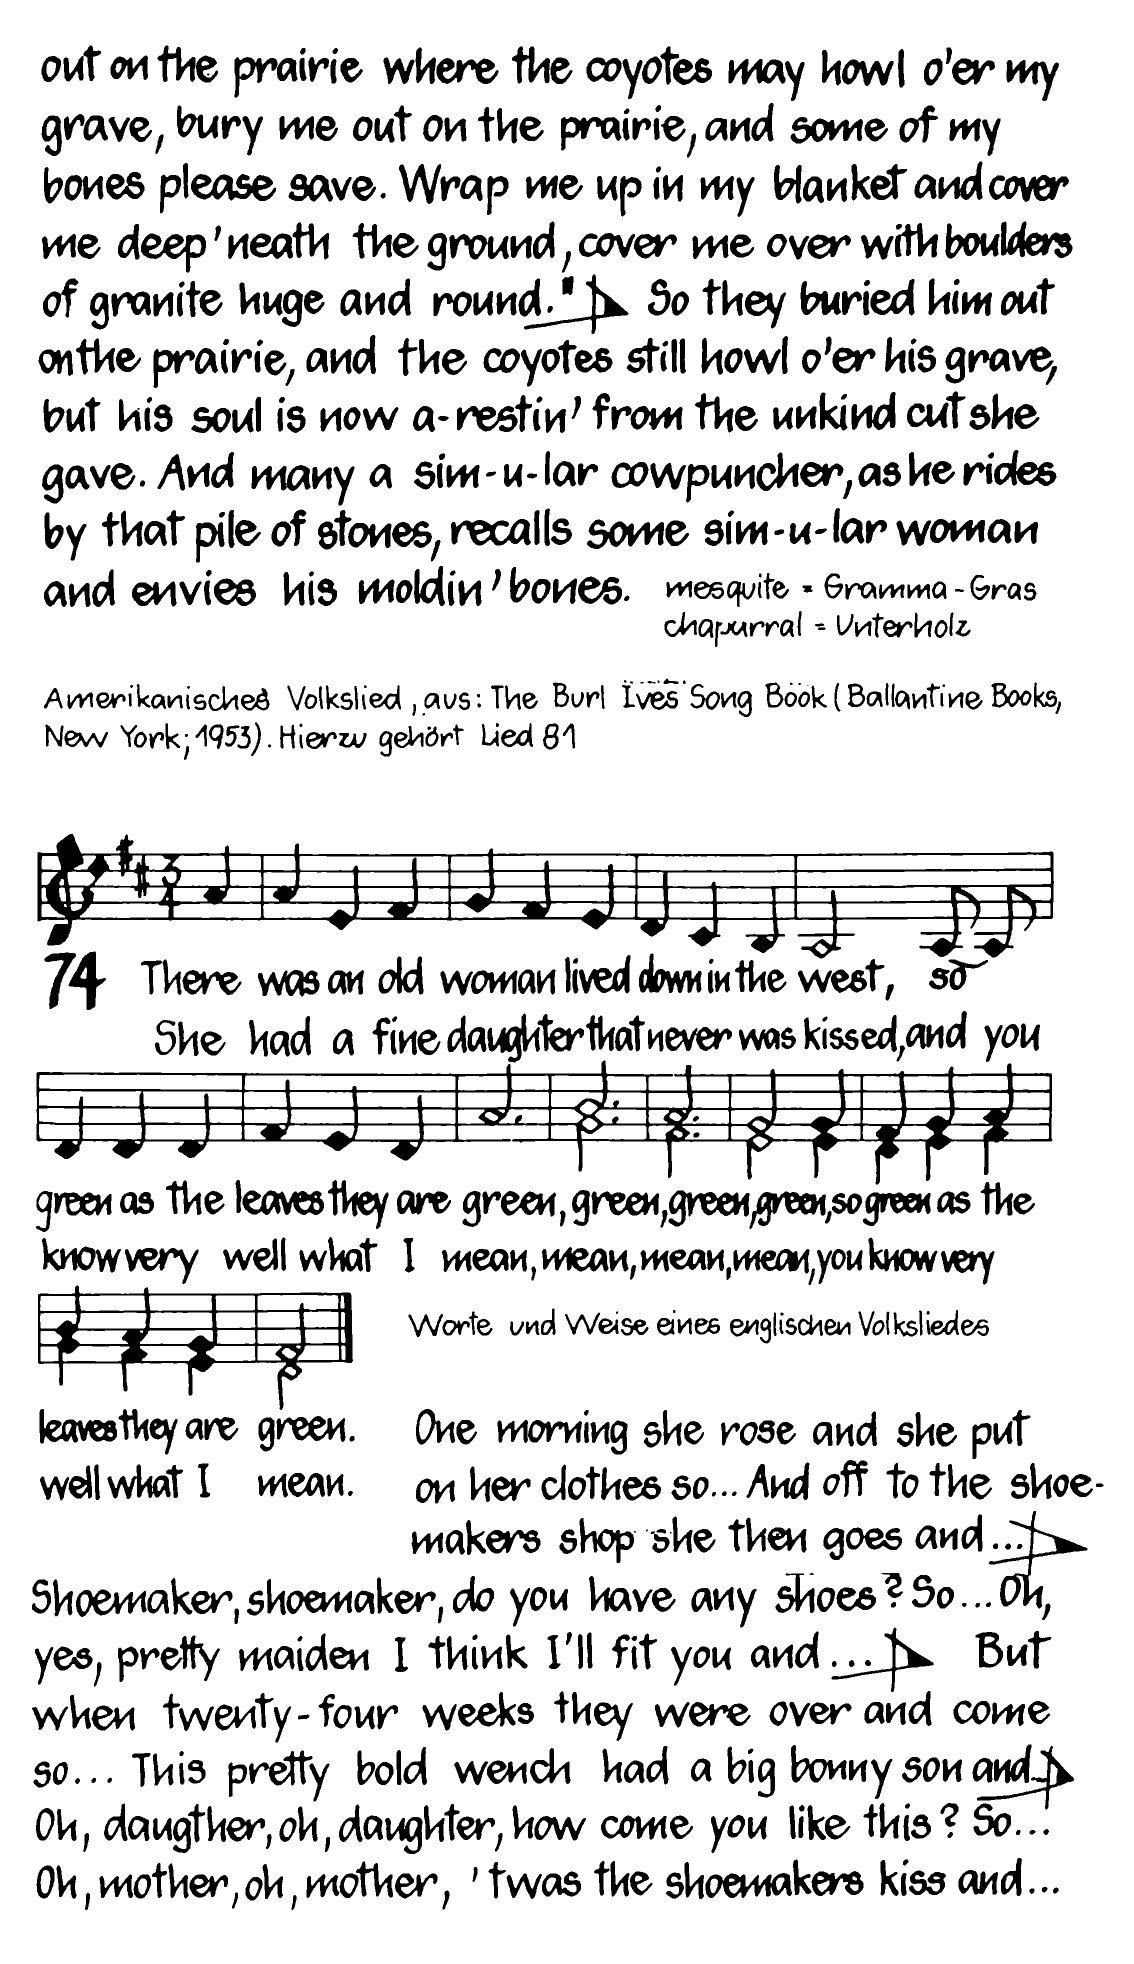 out on the prairie where the coyotes may howl o'er my
grave, bury me out on the prairie, and some of my
bones please save. Wrap me up in my blanket and cover
me deep 'neath the ground, cover me over with boulders
of granite huge and round." So they buried him out
on the prairie, and the coyotes still howl o'er his grave,
but his soul is now a-restin' from the unkind cut she
gave. And many a sim-u-lar cowpuncher, as he rides
by that pile of stones, recalls some sim-u-lar woman
and envies his moldin' bones.
mesquite = Gramma-Gras
chapurral = Unterholz
Amerikanisches Volkslied, aus: The Burl Ives Song Book (Ballantine Books,
New York; 1953). Hierzu gehört Lied 81
3
4
74 There was an old woman lived down in the west, so
She had a fine daughter that never was kissed, and you
green as the leaves they are green, green, green, green, so green as the
know very well what I mean, mean, mean, mean, you know very
Worte und Weise eines englischen Volksliedes
leaves they are green.
well what I mean.
One morning she rose and she put
on her clothes so... And off to the shoe-
makers shop she then goes and...
Shoemaker, shoemaker, do you have any shoes? So... Oh,
yes, pretty maiden I think I'll fit you and... But
when twenty-four weeks they were over and come
so... This pretty bold wench had a big bonny son and...
Oh, daugther, oh, daughter, how come you like this? So...
Oh, mother, oh, mother, 'twas the shoemakers kiss and...